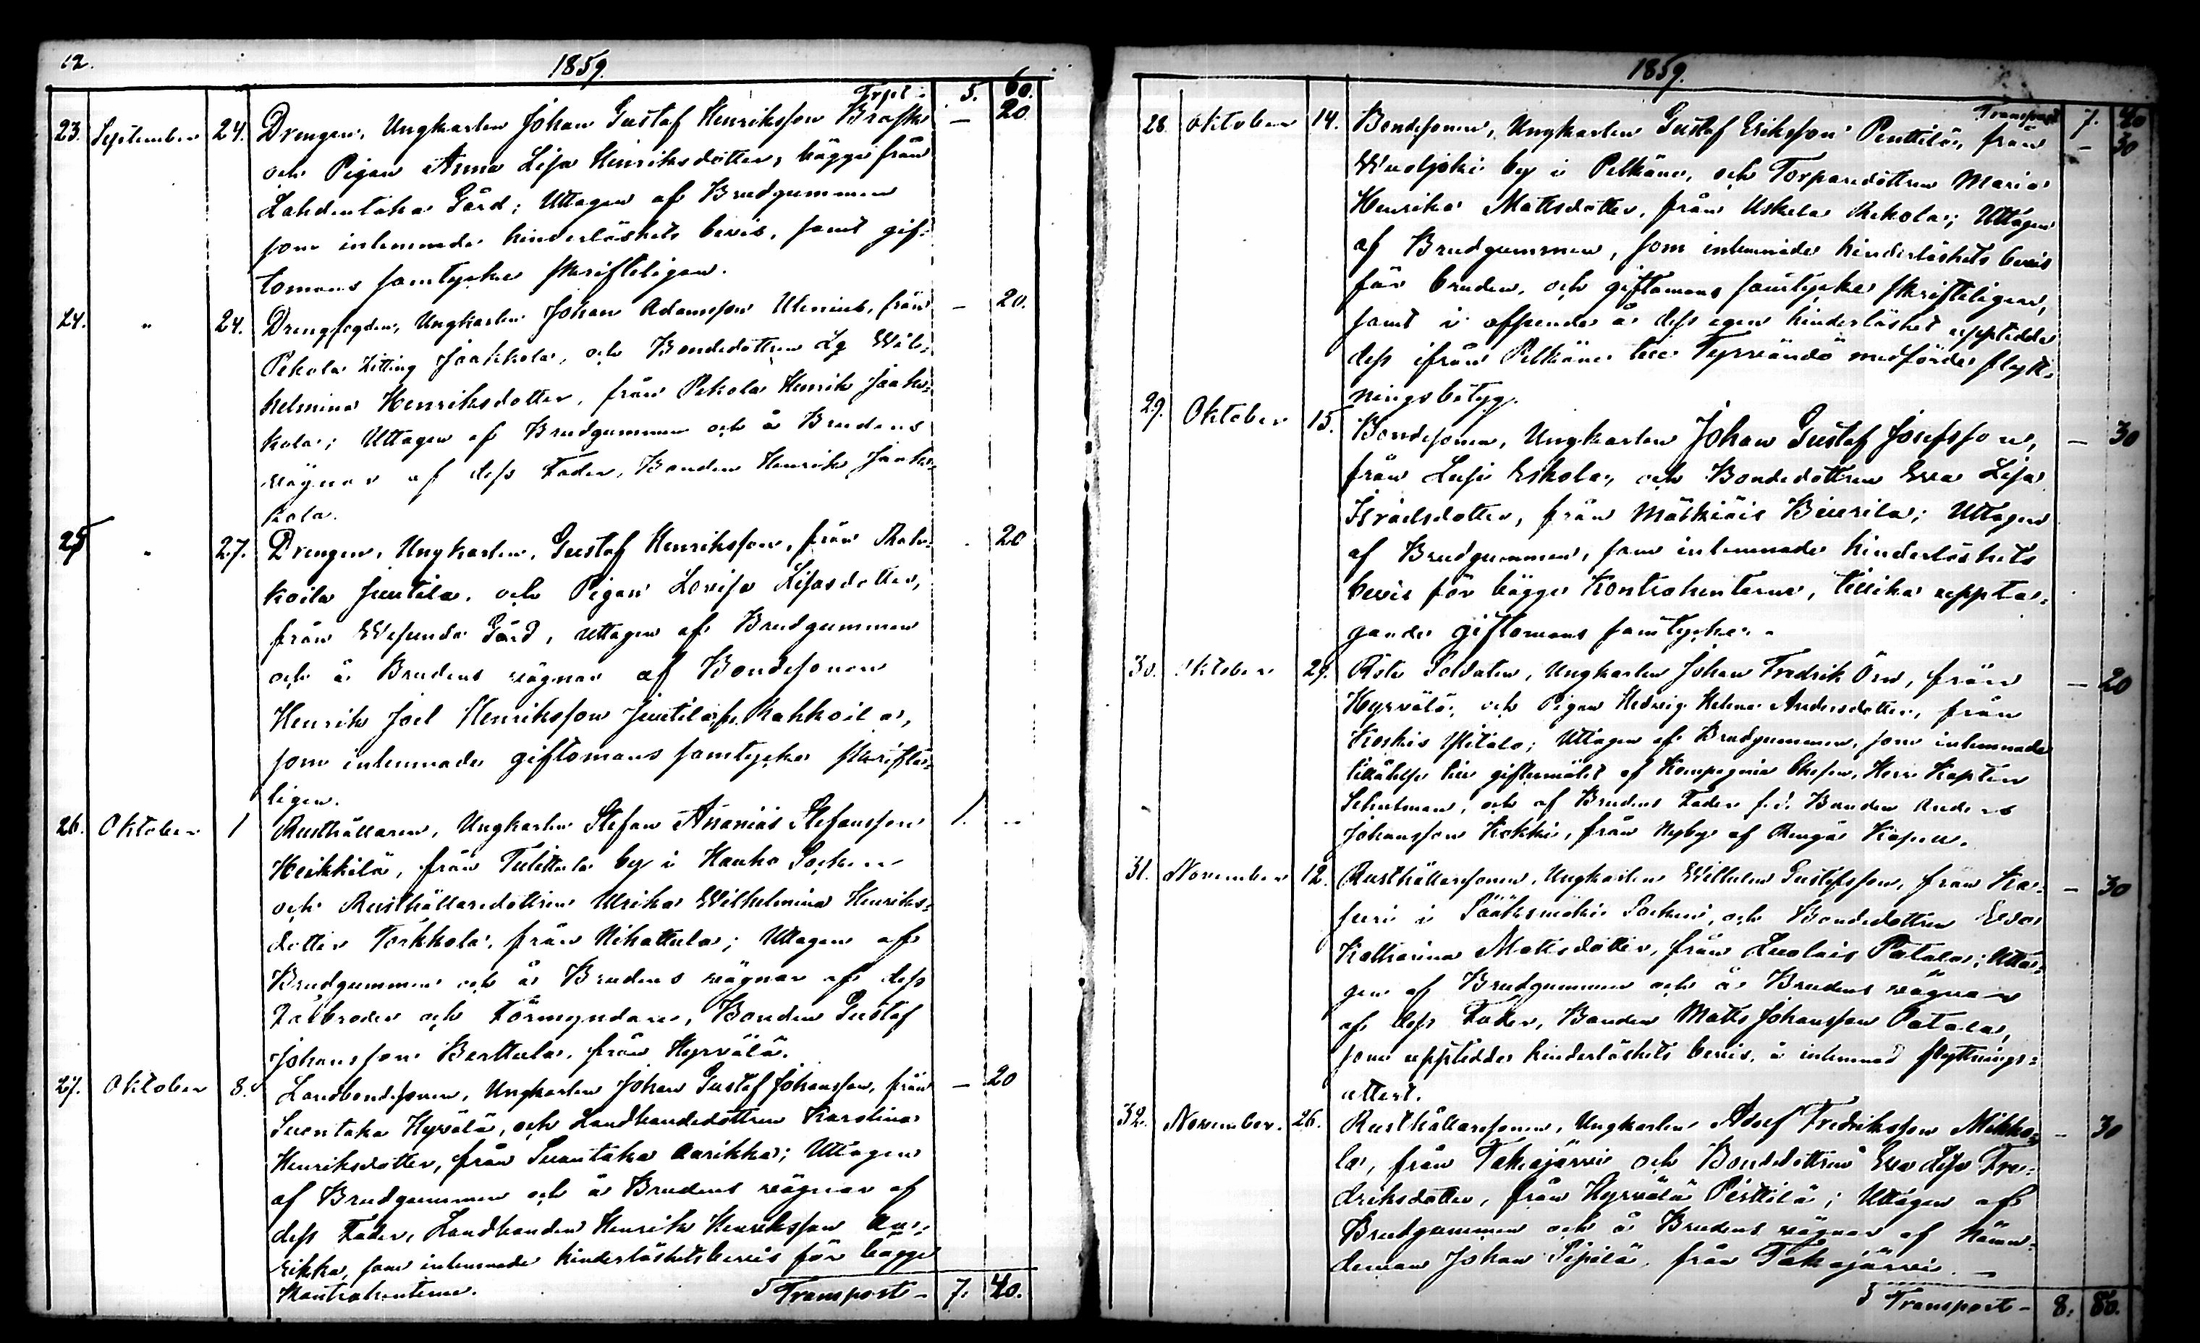 12.
1859.
Trspt 5. 60.
23. September 24. Drengen, Ungkarlen Johan Gustaf Henriksson Brofke — 20
och Pigan Anna Lisa Henriksdotter, bägge från
Lahdentaka Gård; Uttagen af Brudgummen
som inlemnade hinderlöshets bevis, samt gif-
tomans samtycke skrifteligen.
24. " 24. Drengfogden, Ungkarlen Johan Adamsson Utenius, från — 20.
Pekola Jaakkola, och Bondedottren Wil-
helmina Henriksdotter, från Pekola Henrik Jaak-
kola; Uttagen af Brudgummen och å Brudens
vägnar af dess Fader, Bonden Henrik Jaak-
kola.
25 " 27. Drengen, Ungkarlen, Gustaf Henriksson, från Rah- 20
koila Juutila, och Pigan Lovisa Lisasdotter,
från Wesunda Gård, uttagen af Brudgummen
och å Brudens vägnar af Bondesonen
Henrik Joel Henriksson Juutila, fr. Rahkoila,
som inlemnade giftomans samtycke skrifte-
ligen.
26. Oktober 1 Rusthållaren, Ungkarlen Stefan Ananias Stefansson 1. ..
Heikkilä, från Tulttala by i Hauho Socken
och Rusthållaredottren Ulrika Wilhelmina Henriks-
dotter Torkkola, från Nihattula; Uttagen af
Brudgummen och å Brudens vägnar af dess
Halbroder och Förmyndare, Bonden Gustaf
Johansson Berttula, från Hyrvälä.
27. Oktober 8. Landbondesonen, Ungkarlen Johan Gustaf Johansson, från — 20
Suontaka Hyvälä, och Landbondedottren Karolina
Henriksdotter, från Suontaka Aarikka; Uttagen
af Brudgummen och å Brudens vägnar af
dess Fader, Landbonden Henrik Henriksson Aa-
rikka, som inlemnade hinderlöshetsbevis för bägge
Kontrahenterne. Transport — 7. 40.
1859.
Transport 7. 40
28. Oktober 14. Bondesonen, Ungkarlen Gustaf Eriksson Penttilä, från — 30
Wuoljoki by i Pelkäne, och Torparedottren Maria
Henrika Mattsdotter, från Uskila Rekola; Uttagen
af Brudgummen, som inlemnade hinderlöshets bevis
för bruden, och giftomans samtycke skrifteligen,
samt i afseende å dess egen hinderlöshet uppteedde
dess ifrån Pelkäne till Tyrväntö medförde flytt-
ningsbetyg.
29. Oktober 15. Bondesonen, Ungkarlen Johan Gustaf Josefsson, — 30
från Lusi Eskola, och Bondedottren Eva Lisa
Israelsdotter, från Mälkiäis Beurila; Uttagen
af Brudgummen, som inlemnade hinderlöshets
bevis för bägge Kontrahenterne, tillika uppta-
gande giftomans samtycke. -
30. Oktober 29. Soldaten, Ungkarlen Johan Fredrik Örn, från — 20
Hyrvälä, och Pigan Hedvig Helena Andersdotter, från
Koskis Ylitalo; Uttagen af Brudgummen, som inlemnade
tillåtelse till giftermålet af Kompagnie Chefen, Herr Kapten
Schulman, och af Brudens Fader f.d. Bonden Anders
Johansson Kokki, från Nyby af Rengo Kapell.
31. November 12. Rusthållaresonen, Ungkarlen Wilhelm Gustafsson, från Ka- — 30
juri i Sääksmäki Socken, och Bondedottren Eva
Katharina Mattsdotter, från Luolais Patala; Utta-
gen af Brudgummen och å Brudens vägnar
af dess Fader, Bonden Matts Johansson Patala,
som uppteedde hinderlöshets bevis, å inlemnad flyttnings-
attest.
32. November. 26. Rusthållaresonen, Ungkarlen Adolf Fredriksson Mikko- — 30
la, från Takajärvi och Bondedottren Eva Lisa Fre-
driksdotter, från Hyrvälä Perttilä; Uttagen af
Brudgummen och å Brudens vägnar af Nämn-
deman Johan Pispilä, från Takajärvi. —
Transport — 8. 80.